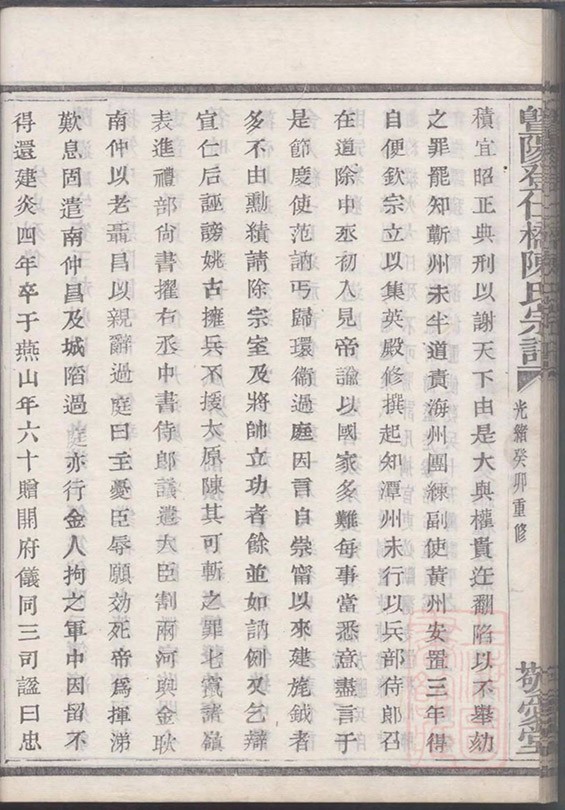 暨陽登仕橋陳氏宗譜
光緒癸卯重修
敬愛堂
積宜昭正典刑以謝天下由是大與權貴迕翻陷以不舉劾
之罪罷知蘄州未半道責海州團練副使黃州安置三年得
自便欽宗立以集英殿修撰起知潭州未行以兵部侍郎召
在道除中丞初入見帝諭以國家多難每事當悉意盡言于
是節慶使范訥丐歸環衛過庭因言自崇甯以來建旄鉞者
多不由勳績請除宗室及將帥立功者餘並如訥例又乞辯
宣仁后誣謗姚古擁兵不援太原陳其可斬之罪七竄諸嶺
表進禮部尚書擢右丞中書侍郎議遣大臣割兩河與金耿
南仲以老聶昌以親辭過庭曰主憂臣辱願効死帝爲揮涕
歎息固遣南仲昌及城陷過庭亦行金人拘之軍中因留不
得還建炎四年卒于燕山年六十贈開府儀同三司謚曰忠